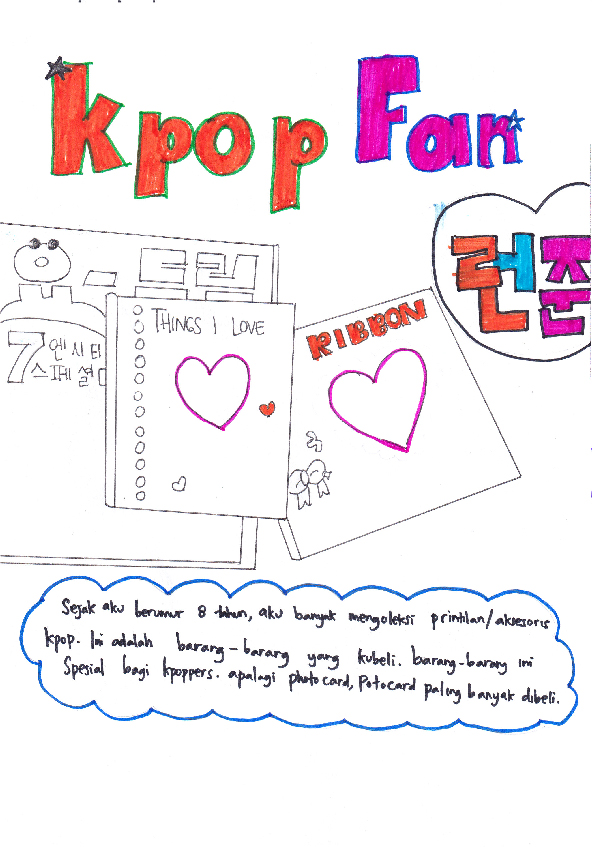 kpop Fan
런쥔
드림
7 엔시티
스페셜
THINGS I LOVE
RIBBON
Sejak aku berumur 8 tahun, aku banyak mengoleksi printilan/aksesoris
kpop. Ini adalah barang-barang yang kubeli. barang-barang ini
Spesial bagi kpoppers. apalagi photocard, Potocard paling banyak dibeli.